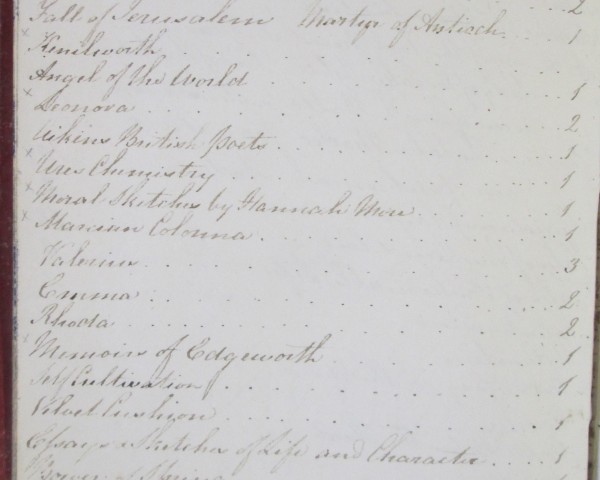 2
Fall of Jerusalem Martyr of Antioch . . . 1
x Kenilworth . . . . . . . . . .
Angel of the World . . . . . . . . 1
x Leonora . . . . . . . . . . 2
Aikins British Poets . . . . . . . . 1
x Ures Chemistry . . . . . . . . . 1
x Moral Sketches by Hannah More . . . . . 1
x Marcian Colonna . . . . . . . . . 1
Valerius . . . . . . . . . . 3
Emma . . . . . . . . . . 2
Rhoda . . . . . . . . . . 2
x Memoirs of Edgeworth . . . . . . . 1
Self Cultivation . . . . . . . . . 1
Velvet Cushion . . . . . . . . . 1
Essays & Sketches of Life and Character . . . . 1
Power of